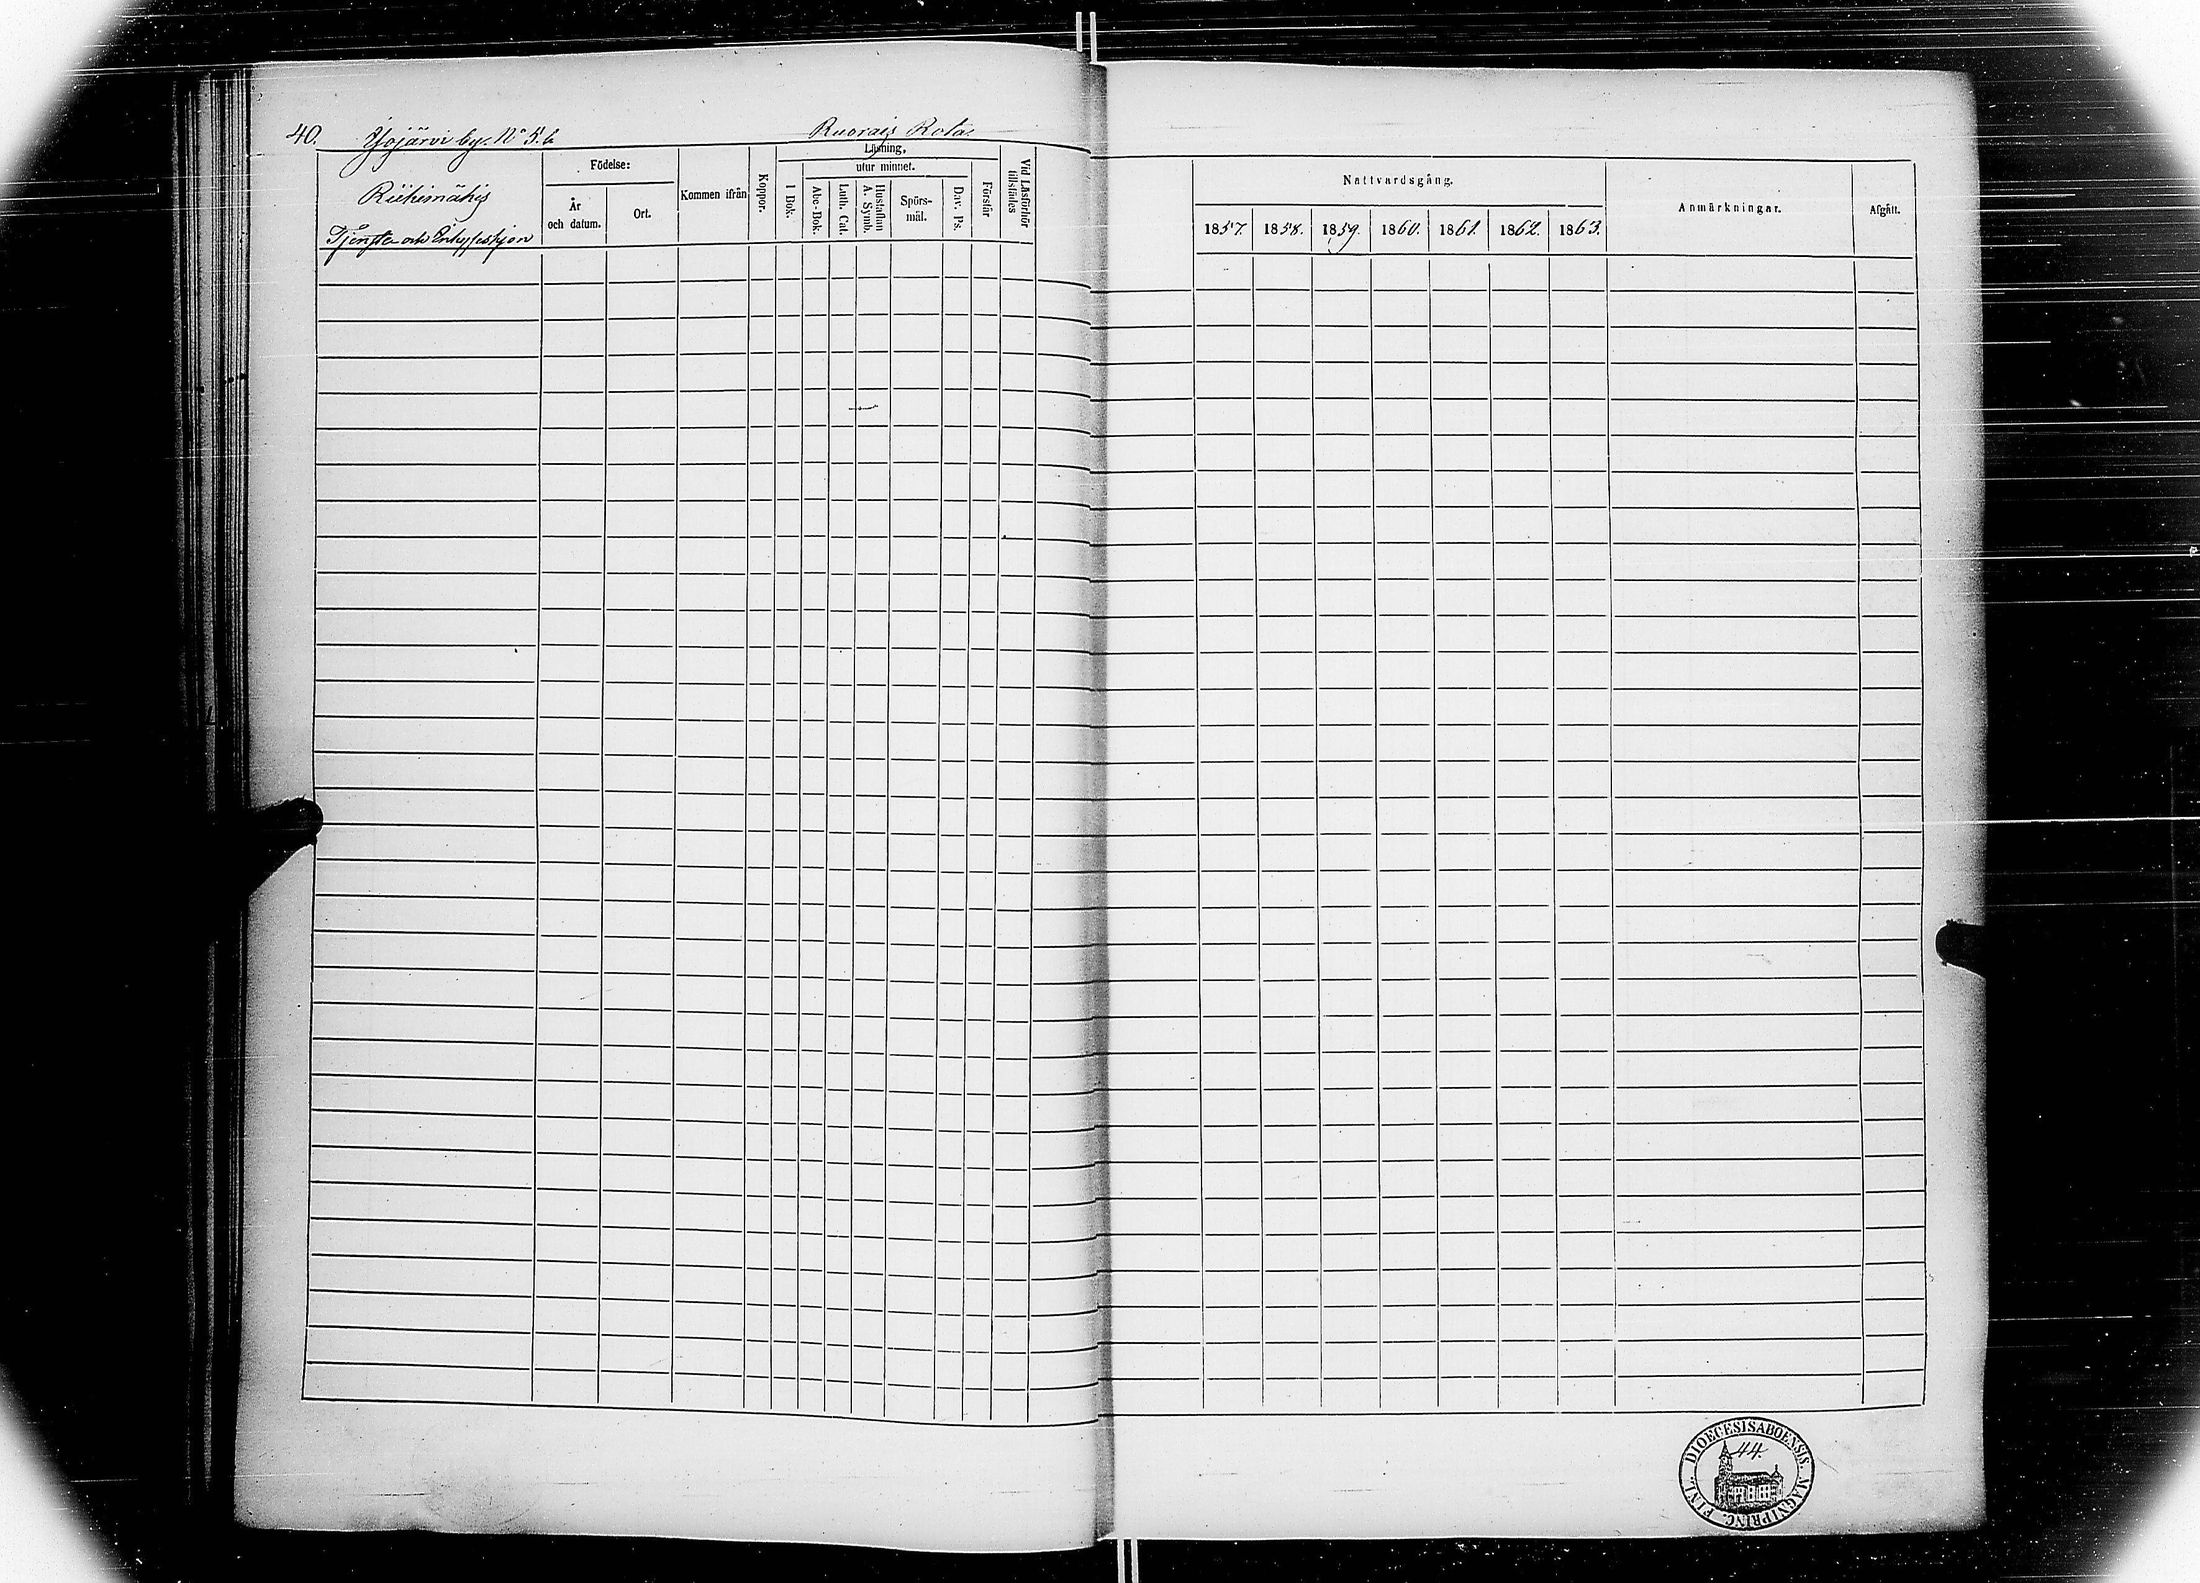 40. Yojärvi by. No 5. b Ruorais Rota.
Riihimähis
Tjenste och Inhyseshjon
Födelse:
År och datum.
Ort.
Kommen ifrån
Koppor.
Läsning,
utur minnet.
I Bok.
Abc-Bok.
Luth. Cat.
Hustaflan A. Symb.
Spörs-mål.
Dav. Ps.
Förstår
Vid Läsförhör tillstädes
Nattvardsgång.
1857. 1858. 1859. 1860. 1861. 1862. 1863.
Anmärkningar.
Afgått.
44.
DIOECESIS ABOENSIS. MAGNI PRINC. FINL.